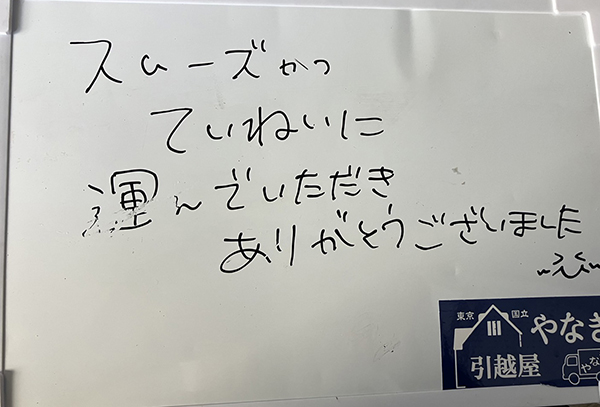 スムーズかつ
ていねいに
運んでいただき
ありがとうございました
東京 国立 やなぎ
引越屋 やな